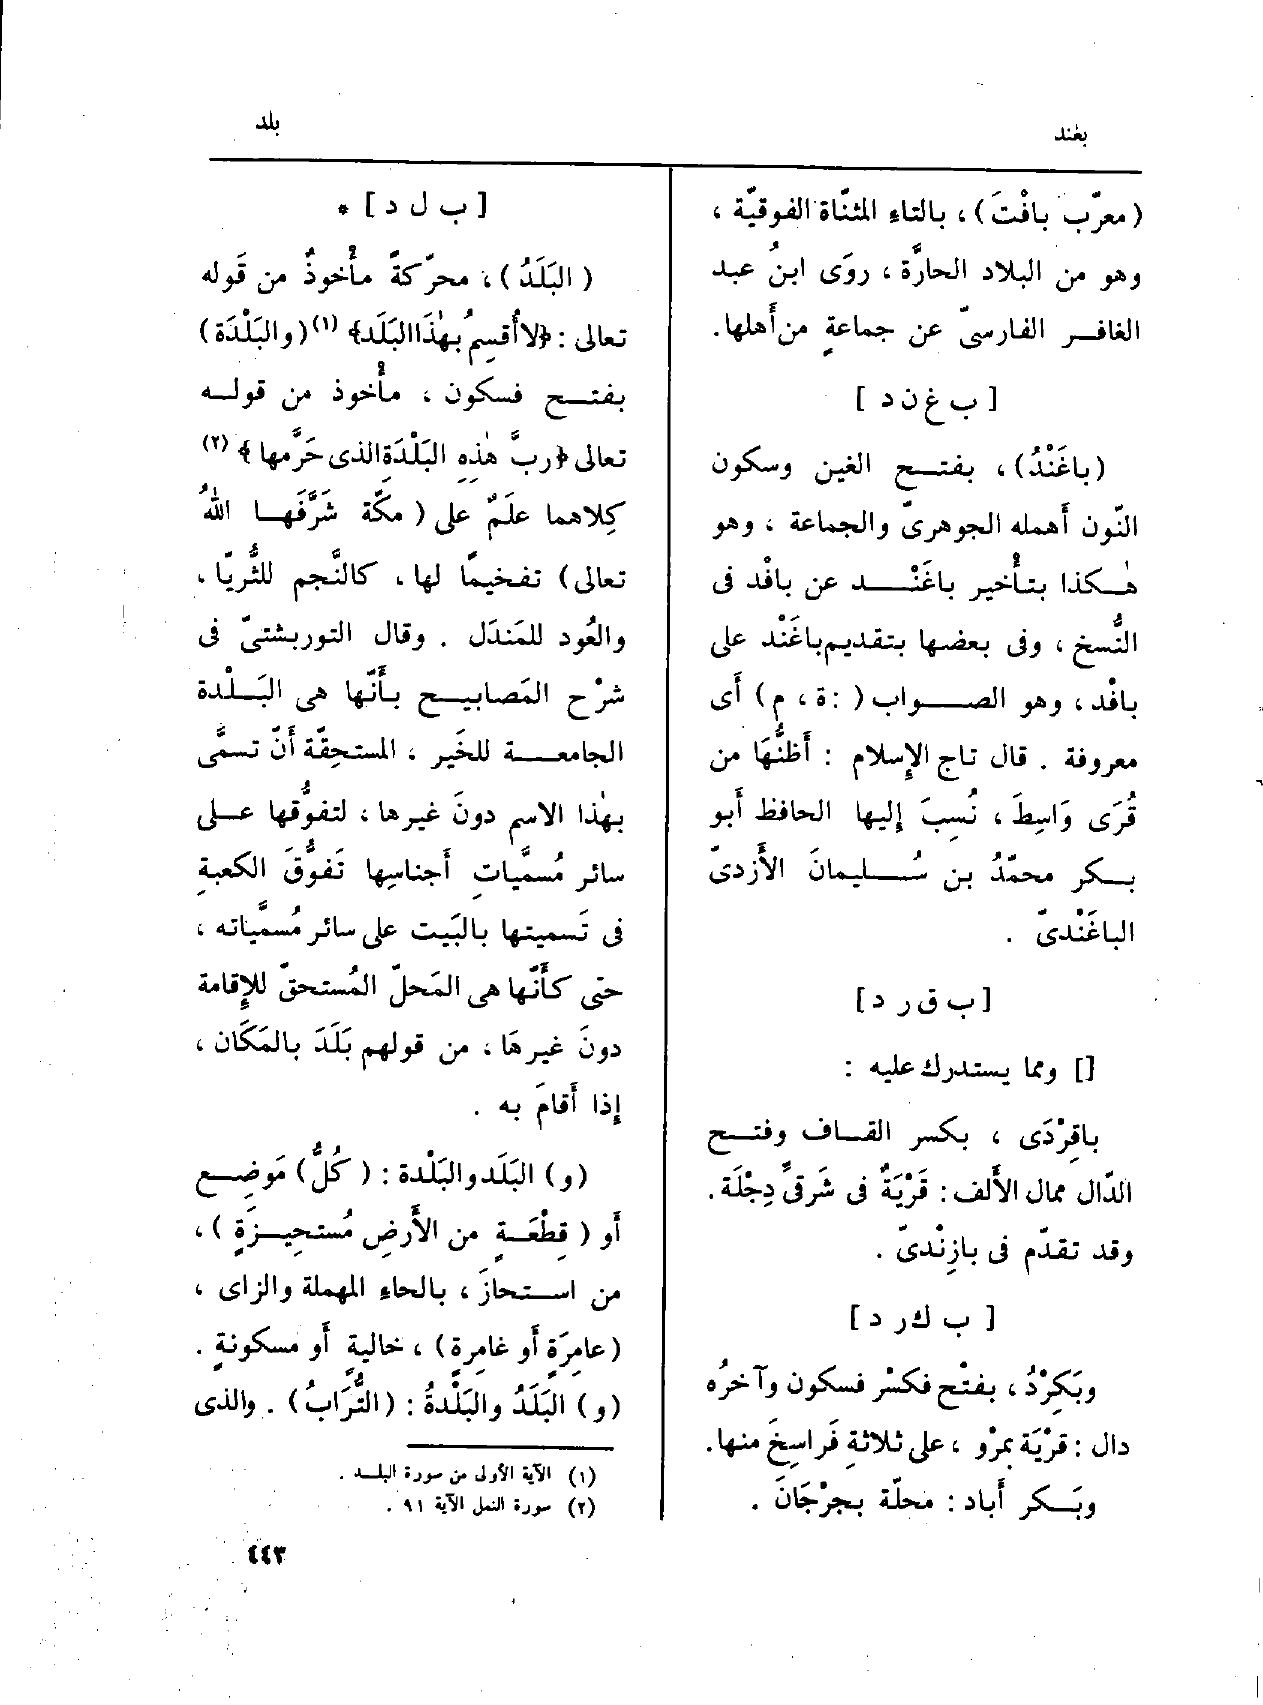 بغند
بلد
(معرّب بافْتَ) ، بالتاءِ المثنّاة الفوقيّة ،
وهو من البلاد الحارَّة ، روَى ابنُ عبد
الغافر الفارسىّ عن جماعةٍ من أَهلها.
[ ب غ ن د ]
(باغَنْدُ) ، بفتح الغين وسكون
النّون أَهمله الجوهرىّ والجماعة ، وهو
هٰكذا بتأْخير باغَنْد عن بافْد فى
النُّسخ ، وفى بعضها بتقديم باغَنْد على
بافْد ، وهو الصواب ( : ة ، م ) أَى
معروفة . قال تاج الإِسلام : أَظنُّهَا من
قُرَى وَاسِطَ ، نُسِبَ إِليها الحافظ أَبو
بكر محمّدُ بن سُليمانَ الأَزدىّ
الباغَنْدىّ .
[ ب ق ر د ]
[] ومما يستدرك عليه :
باقِرْدَى ، بكسر القاف وفتح
الدّال ممال الأَلف : قَرْيَةٌ فى شَرقىِّ دِجْلَة.
وقد تقدّم فى بازِنْدىّ .
[ ب ك ر د ]
وبَكِرْدُ ، بفتْح فكسْر فسكون وآخرُه
دال : قرْيَة بمرْو ، على ثلاثةِ فَراسِخَ منها.
وبَكر أَباد : محلّة بجرْجَانَ .
[ ب ل د ] *
( البَلَدُ ) ، محرّكةً مأْخوذٌ من قَوله
تعالى : ﴿لا أُقسِمُ بهٰذَا البَلَد﴾ (١) ( والبَلْدَة )
بفتح فسكون ، مأْخوذ من قوله
تعالى ﴿ربَّ هٰذِهِ البَلْدَةِ الذى حَرَّمها ﴾ (٢)
كِلاهما علَمٌ على ( مكّة شَرَّفَها اللهُ
تعالى ) تفخيمًا لها ، كالنَّجم للثُّريّا ،
والعُود للمَندَل . وقال التوربشتىّ فى
شرْح المَصابيح بأَنّها هى البَلْدة
الجامعة للخَير ، المستحِقّة أَنّ تسمَّى
بهٰذا الاسم دونَ غيرها ، لتفوُّقها على
سائر مُسمَّياتِ أَجناسِها تَفوُّقَ الكعبةِ
فى تَسميتها بالبَيت على سائر مُسمَّياته ،
حتى كأَنّها هى المَحلّ المُستحقّ للإِقامة
دونَ غيرهَا ، من قولهم بَلَدَ بالمَكَان ،
إِذا أَقامَ به .
(و) البَلَد والبَلْدة : ( كُلُّ ) مَوضِع
أَو ( قِطْعَةٍ من الأَرضِ مُستحِيزَةٍ ) ،
من استحازَ ، بالحاءِ المهملة والزاى ،
(عامِرَةٍ أَو غامِرةٍ) ، خاليةٍ أَو مسكونةٍ .
(و) البَلَدُ والبَلْدةُ : (التُّرَابُ) . والذى
(١) الآية الأولى من سورة البلد .
(٢) سورة النمل الآية ٩١ .
٤٤٣